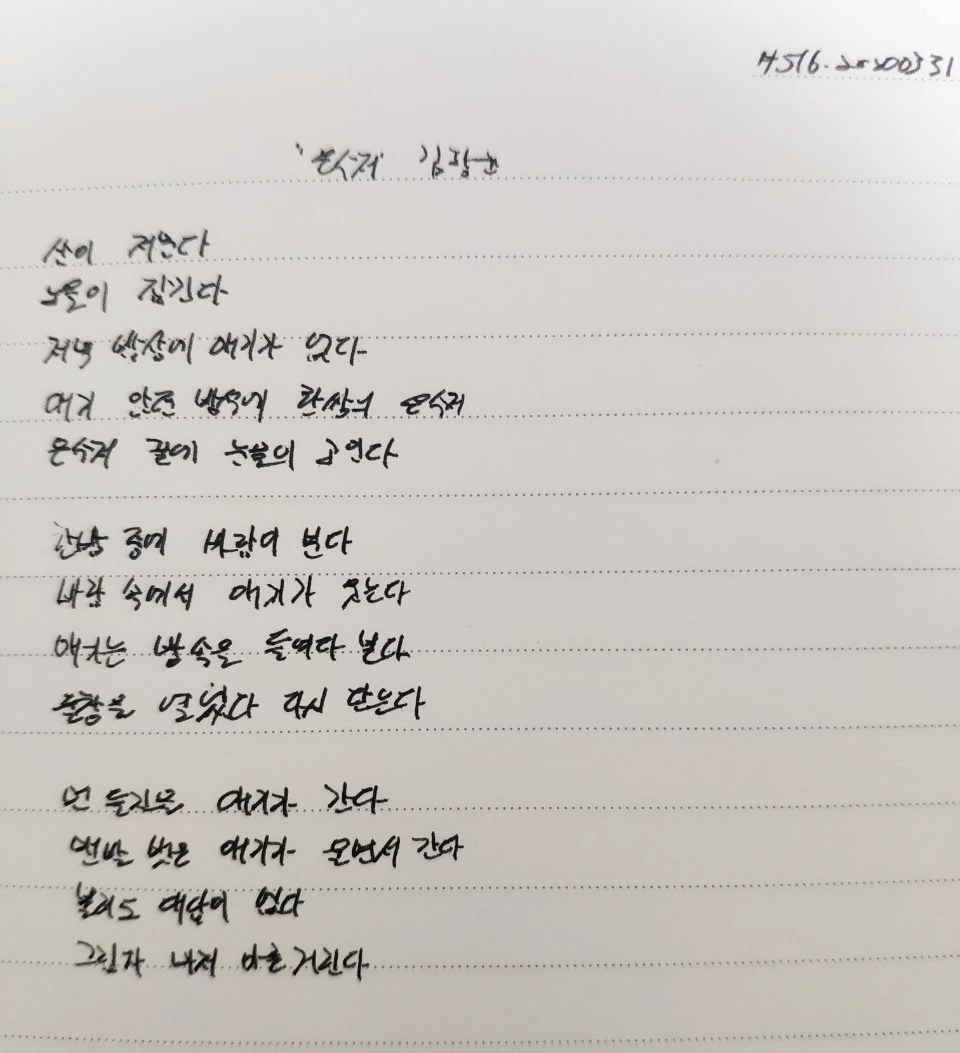 4516.20200331
'은수저' 김광균
산이 저문다
노을이 잠긴다
저녁 밥상에 애기가 없다
애기 안던 방석에 한쌍의 은수저
은수저 끝에 눈물이 고인다
한밤 중에 바람이 분다
바람 속에서 애기가 웃는다
애기는 방 속을 들여다 본다
들창을 열었다 다시 닫는다
먼 들길을 애기가 간다
맨발 벗은 애기가 울면서 간다
불러도 대답이 없다
그림자 마저 아른거린다